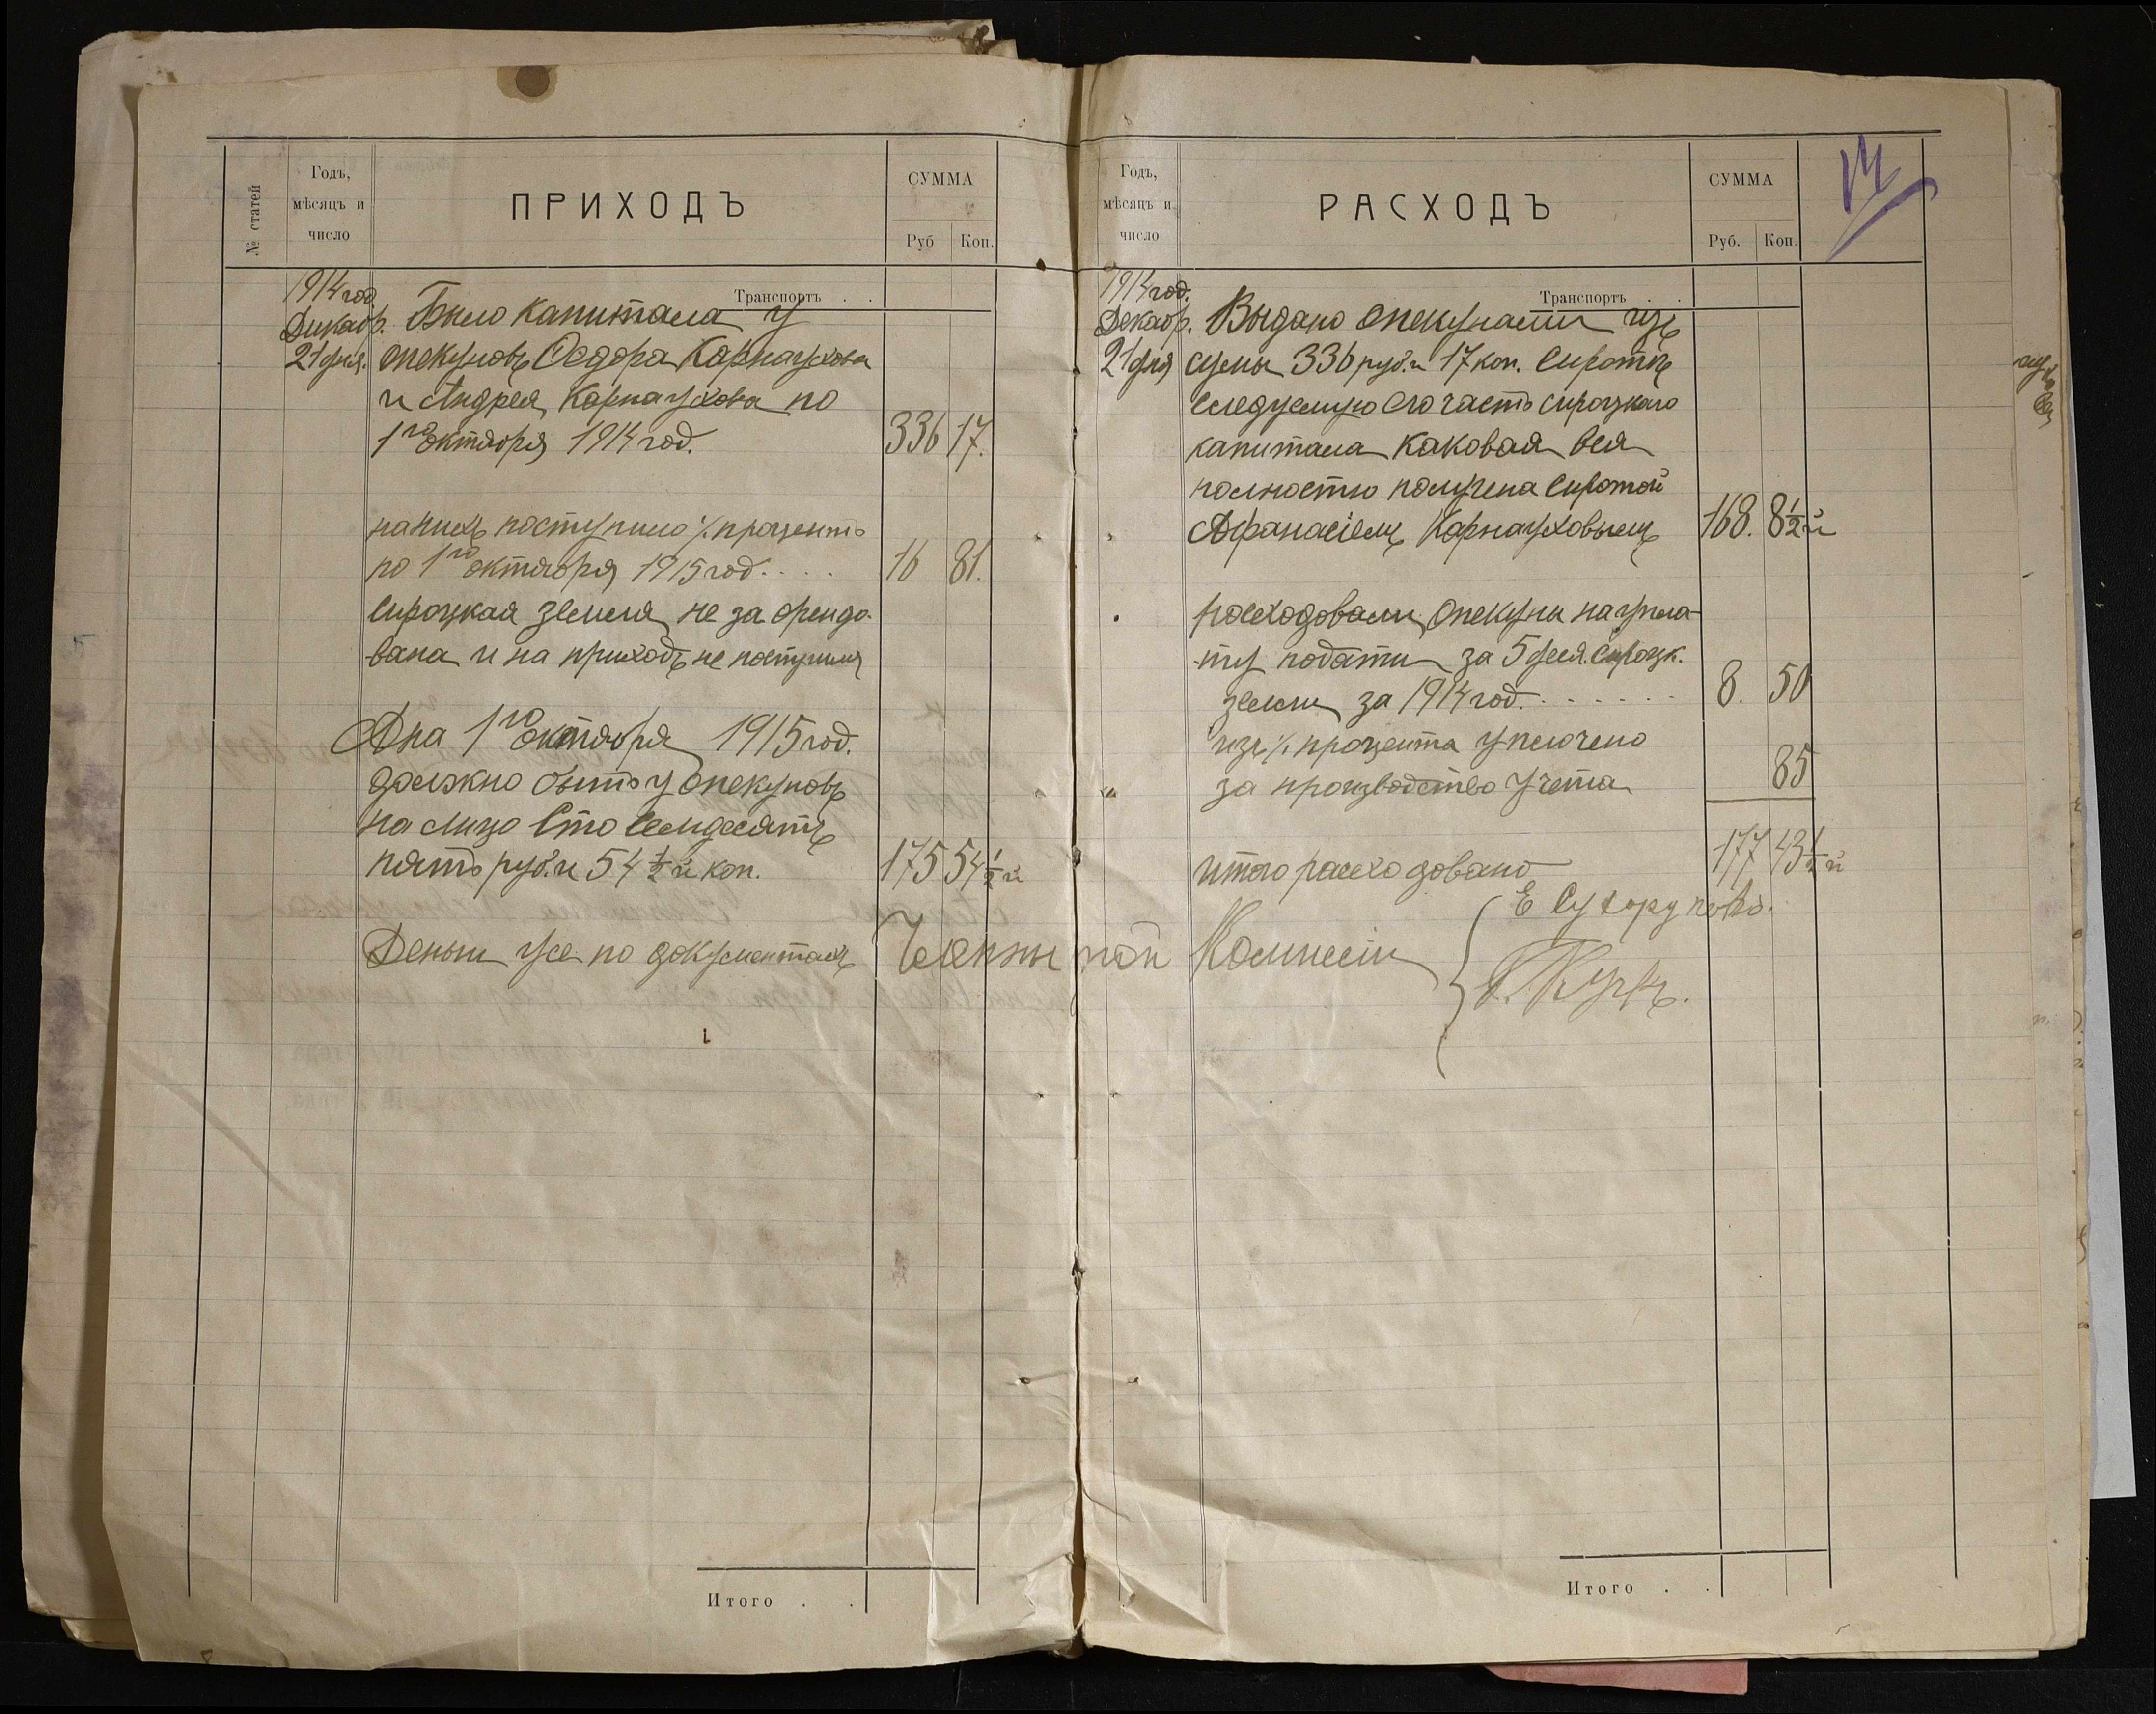 № статей
Годъ, мѣсяцъ и число
ПРИХОДЪ
СУММА
Руб Коп.
Транспортъ . .
1914 год
Дикабр. Было капитала у
21 дня. опекуновъ Федора Карнаухова
и Андрея Карнаухова по
1го октября 1914 год. 336 17.
на нихъ поступило % процентъ
по 1го октября 1915 год.... 16 81.
Сироцкая земля не за орендо-
вана и на приходъ не поступила
А на 1го октября 1915 год.
должно быть у опекуновъ
на лицо Сто Семдесятъ
пять руб. и 54 ½ й коп. 175 54 ½ й
Деньги усе по документахъ
Годъ, мѣсяцъ и число
РАСХОДЪ
СУММА
Руб. Коп.
14
Транспортъ . .
1914 год.
Декабр. Выдано опекунами изъ
21 дня сумы 336 руб. и 17 коп. Сиротѣ
следуемую его часть сироцкаго
капитала каковая вся
полностю получена Сиротой
Афанасіемъ Карнауховымъ 168. 8 ½ й
росходовали опекуны на упла-
ту подати за 5 деся. Сироцк.
земли за 1914 год....... 8. 50
изъ % процента уплочено
за производство учета 85
итого расходовано 177 43 ½ й
Члены той Комисіи
Е Сухоруково.
Итого . .
Итого . .